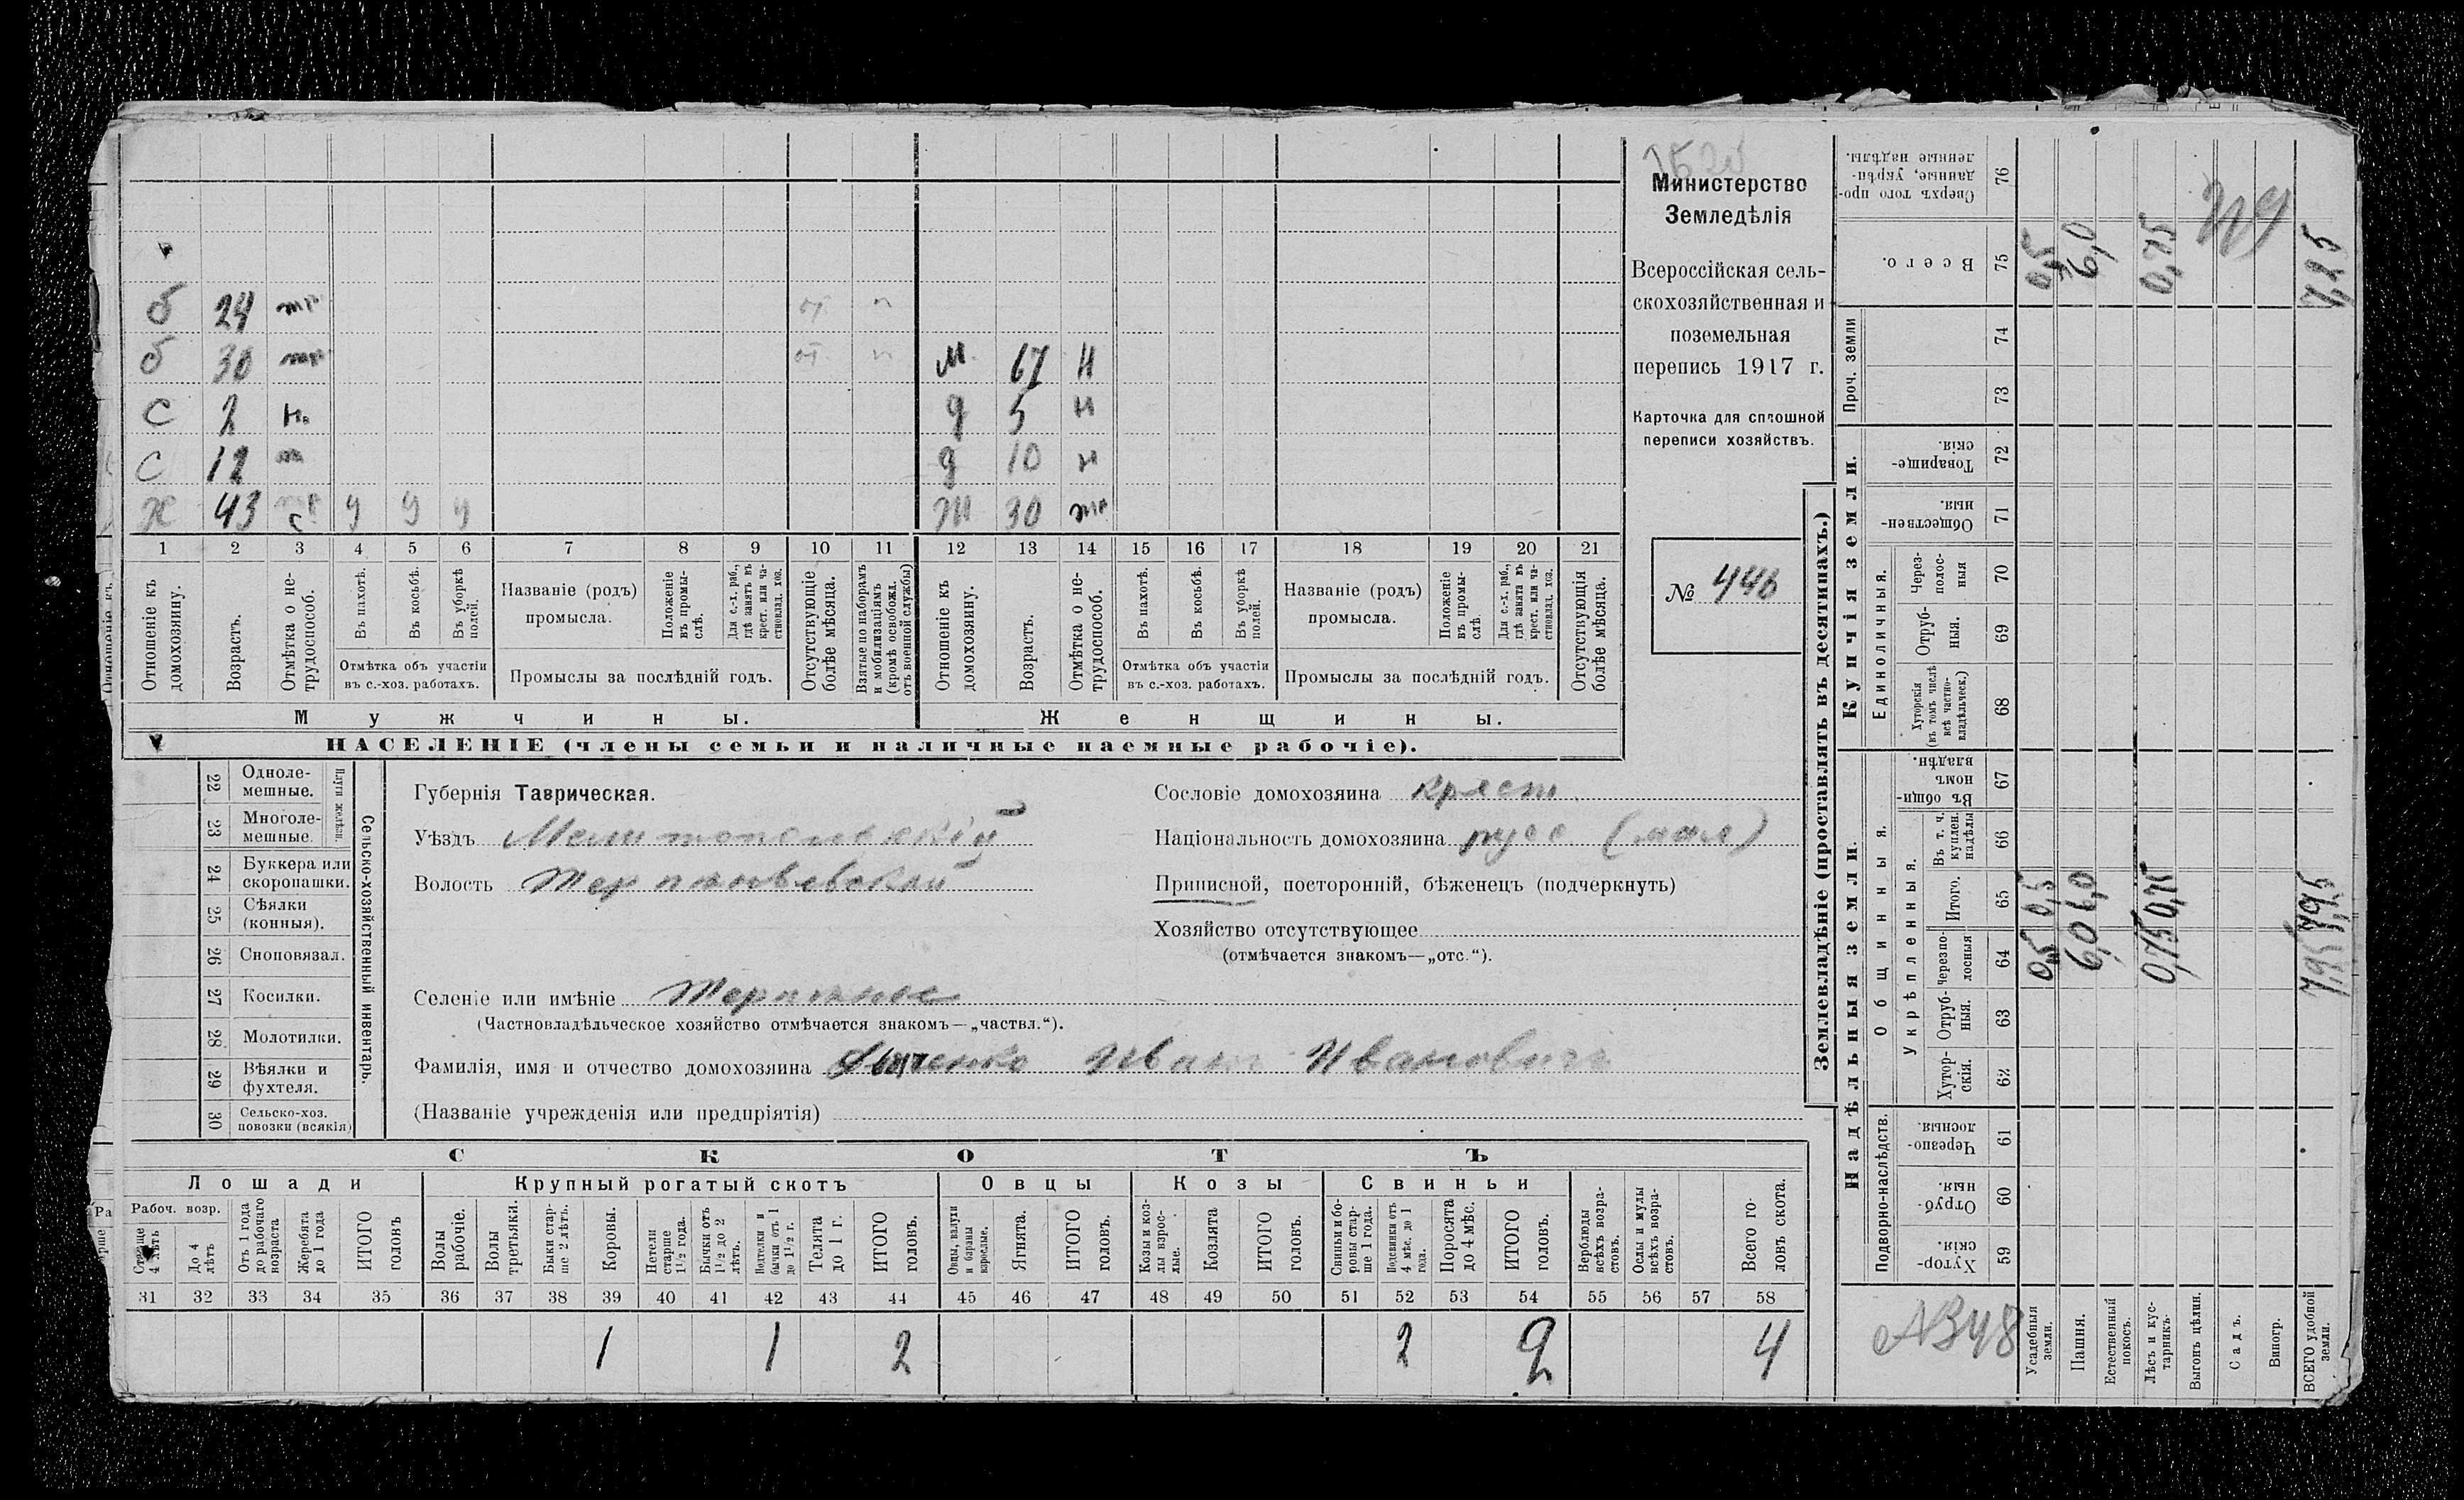 б 24 тр от п
б 30 тр от п м 67 н
с 2 н. д 5 н
с 12 д 10 н
х 43 у у у ж 30 тр
1 2 3 4 5 6 7 8 9 10 11 12 13 14 15 16 17 18 19 20 21
Отношеніе къ домохозяину.
Возрастъ.
Отмѣтка о нетрудоспособ.
Въ пахотѣ.
Въ косьбѣ.
Въ уборкѣ полей.
Отмѣтка объ участіи въ с.-хоз. работахъ.
Названіе (родъ) промысла.
Положеніе въ промыслѣ.
Для с.-х. раб., гдѣ занятъ въ крест. или частновлад. хоз.
Промыслы за послѣдній годъ.
Отсутствующіе болѣе мѣсяца.
Взятые по наборамъ и мобилизаціямъ (кромѣ освобожд. отъ военной службы)
Отношеніе къ домохозяину.
Возрастъ.
Отмѣтка о нетрудоспособ.
Въ пахотѣ.
Въ косьбѣ.
Въ уборкѣ полей.
Отмѣтка объ участіи въ с.-хоз. работахъ.
Названіе (родъ) промысла.
Положеніе въ промыслѣ.
Для с.-х. раб., гдѣ занята въ крест. или частновлад. хоз.
Промыслы за послѣдній годъ.
Отсутствующія болѣе мѣсяца.
Мужчины. Женщины.
НАСЕЛЕНІЕ (члены семьи и наличные наемные рабочіе).
Министерство
Земледѣлія
Всероссійская сель-
скохозяйственная и
поземельная
перепись 1917 г.
Карточка для сплошной
переписи хозяйствъ.
№ 448
Плуги желѣзн.
22 Одноле-
мешные.
23 Многоле-
мешные.
24 Буккера или
скоропашки.
25 Сѣялки
(конныя).
26 Сноповязал.
27 Косилки.
28 Молотилки.
29 Вѣялки и
фухтеля.
30 Сельско-хоз.
повозки (всякія)
Сельско-хозяйственный инвентарь.
Губернія Таврическая.
Уѣздъ Мелитопольскій
Волость
Селеніе или имѣніе
(Частновладѣльческое хозяйство отмѣчается знакомъ—„частвл.“).
Фамилія, имя и отчество домохозяина Иванъ Ивановичъ
(Названіе учрежденія или предпріятія)
Сословіе домохозяина крест.
Національность домохозяина русс. (мал)
Приписной, посторонній, бѣженецъ (подчеркнуть)
Хозяйство отсутствующее
(отмѣчается знакомъ—„отс.“).
СКОТЪ
Лошади Крупный рогатый скотъ Овцы Козы Свиньи
Рабоч. возр.
Старше 4 лѣтъ
До 4 лѣтъ
Отъ 1 года до рабочаго возраста
Жеребята до 1 года
ИТОГО головъ
Волы рабочіе.
Волы третьяки.
Быки старше 2 лѣтъ.
Коровы.
Нетели старше 1½ года.
Бычки отъ 1½ до 2 лѣтъ.
Подтелки и бычки отъ 1 до 1½ г.
Телята до 1 г.
ИТОГО головъ.
Овцы, валухи и бараны взрослые.
Ягнята.
ИТОГО головъ.
Козы и козлы взрослые.
Козлята
ИТОГО головъ.
Свиньи и боровы старше 1 года.
Подсвинки отъ 4 мѣс. до 1 года.
Поросята до 4 мѣс.
ИТОГО головъ.
Верблюды всѣхъ возрастовъ.
Ослы и мулы всѣхъ возрастовъ.
Всего головъ скота.
31 32 33 34 35 36 37 38 39 40 41 42 43 44 45 46 47 48 49 50 51 52 53 54 55 56 57 58
1 1 2 2 2 4
Землевладѣніе (проставлять въ десятинахъ.)
Надѣльныя земли.
Купчія земли.
Проч. земли
Подворно-наслѣдств.
Общинныя.
Укрѣпленныя.
Единоличныя.
Хуторскія. 59
Отрубныя. 60
Черезполосныя. 61
Хуторскія. 62
Отрубныя. 63
Черезполосныя 64
Итого. 65
Въ т. ч. куплен. надѣлы 66
Въ общинномъ владѣн. 67
Хуторскія (въ томъ числѣ всѣ частновладѣльческ.) 68
Отрубныя. 69
Черезполосныя 70
Общественныя 71
Товарищескія. 72
73
74
Всего. 75
Сверхъ того проданные, укрѣпленные надѣлы. 76
Усадебныя земли. 0,5 0,5 0,5
Пашня. 6,0 6,0 6,0
Естественный покосъ.
Лѣсъ и кустарникъ. 0,75 0,75 0,75
Выгонъ цѣлин.
Садъ.
Виногр.
ВСЕГО удобной земли. 7,25